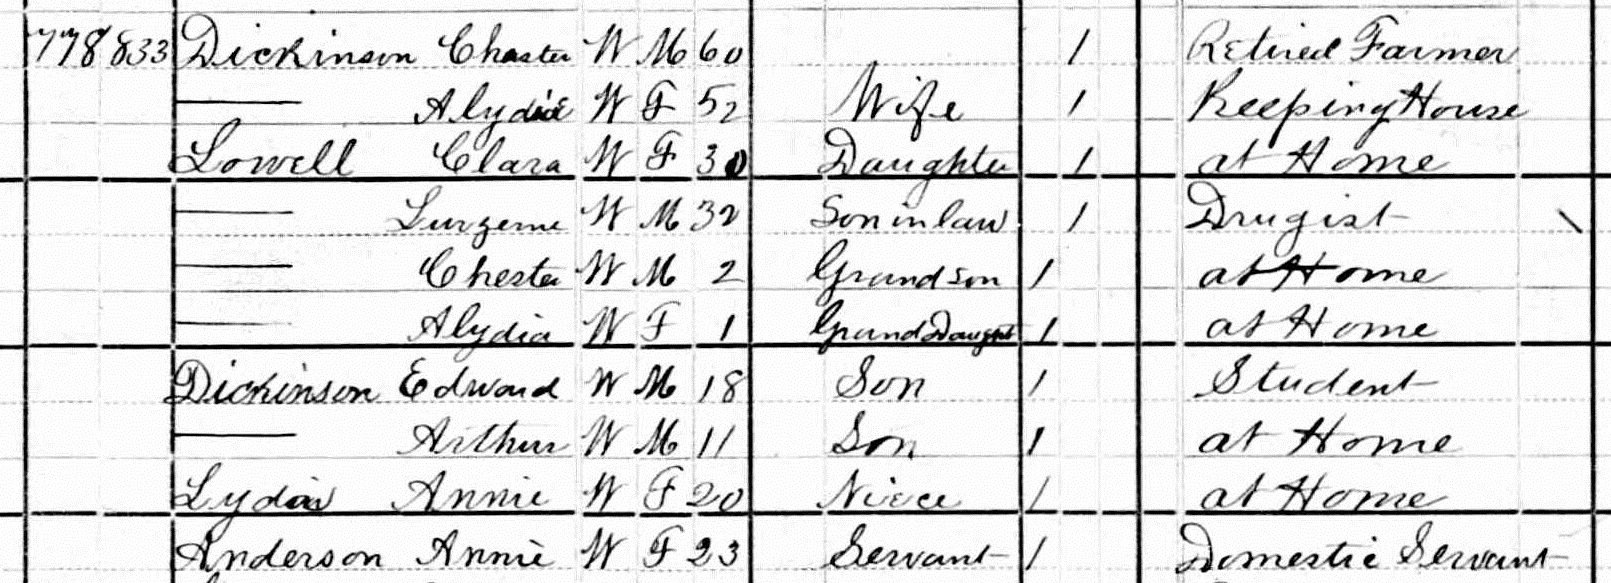 778 833 Dickinson Chester W M 60 1 Retired Farmer
— Alydia W F 52 Wife 1 Keeping House
Lowell Clara W F 30 Daughter 1 at Home
— Luzerne W M 32 Son in law 1 Drugist
— Chester W M 2 Grandson 1 at Home
— Alydia W F 1 Grand Daught 1 at Home
Dickinson Edward W M 18 Son 1 Student
— Arthur W M 11 Son 1 at Home
Annie W F 20 Niece 1 at Home
Anderson Annie W F 23 Servant 1 Domestic Servant